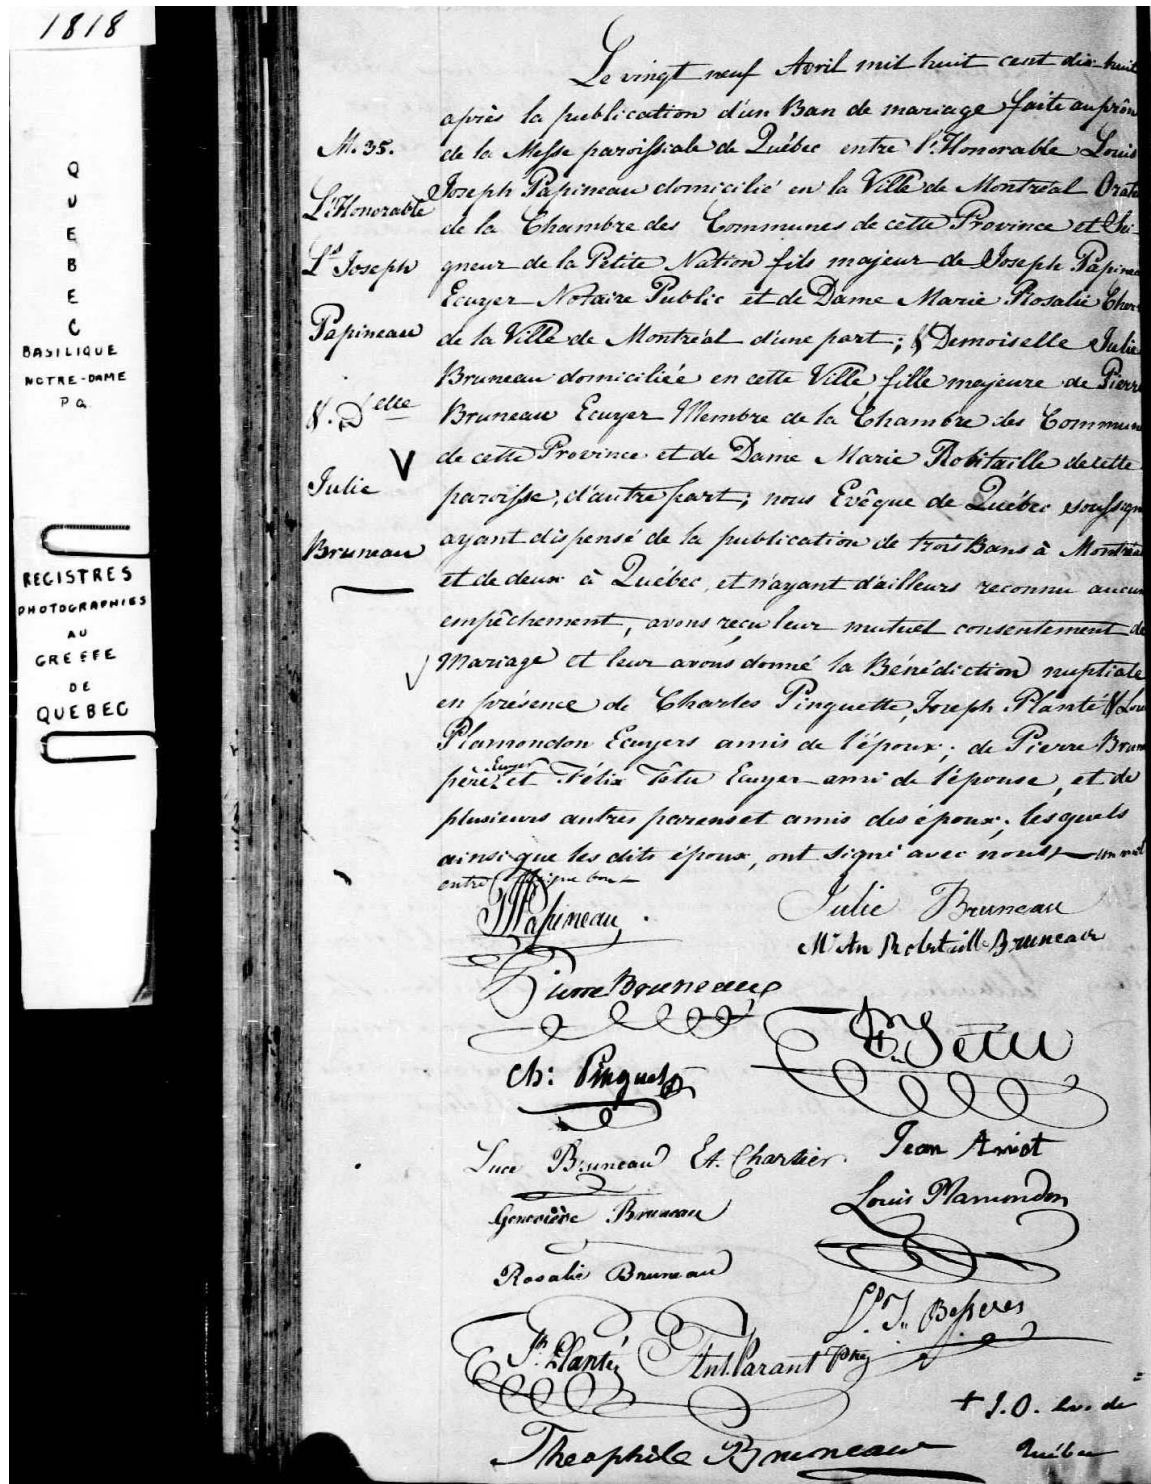 1818
QUEBEC
BASILIQUE
NOTRE-DAME
P Q
REGISTRES
PHOTOGRAPHIES
AU
GREFFE
DE
QUEBEC
M. 35.
L'Honorable
Ls Joseph
Papineau
&. Delle
Julie
Bruneau
Le vingt neuf Avril mil huit cent dix-huit
après la publication d'un Ban de mariage faite au prôn
de la Messe paroissiale de Québec entre l'Honorable Louis
Joseph Papineau domicilié en la Ville de Montréal Orat
de la Chambre des Communes de cette Province et Sei-
gneur de la Petite Nation fils majeur de Joseph Papinea
Ecuyer Notaire Public et de Dame Marie Rosalie Cher
de la Ville de Montréal d'une part; & Demoiselle Julie
Bruneau domiciliée en cette Ville, fille majeure de Pierre
Bruneau Ecuyer Membre de la Chambre des Commun
de cette Province et de Dame Marie Robitaille de cette
paroisse, d'autre part; nous Evêque de Québec soussign
ayant dispensé de la publication de trois Bans à Montréal
et de deux à Québec, et n'ayant d'ailleurs reconnu aucun
empêchement, avons reçu leur mutuel consentement de
Mariage et leur avons donné la Bénédiction nuptiale
en présence de Charles Pinguette, Joseph Planté & Lou
Plamondon Ecuyers amis de l'époux; de Pierre Brun
Ecuyer
père et Félix Têtu Ecuyer ami de l'épouse, et de
plusieurs autres parens et amis des époux; lesquels
ainsi que les dits époux, ont signé avec nous un mot
entre ligne bon
LJPapineau
Julie Bruneau
Mie An Robitaille Bruneau
Pierre Bruneau
Fx Tetu
Ch: Pinguet
Luce Bruneau Et. Chartier Jean Amiot
Geneviève Bruneau Louis Plamondon
Rosalie Bruneau
L. J. Besseres
Jh Planté Ant. Parant Ptre
+ J. O. Ev. de
Québec
Theophile Bruneau